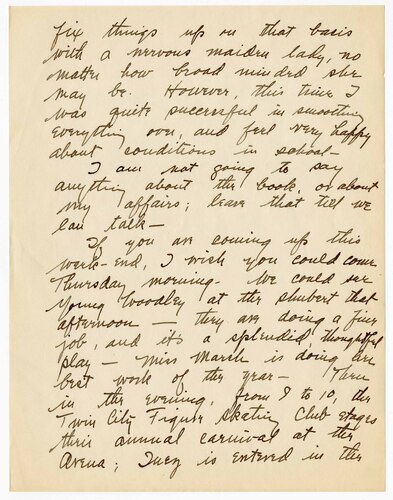 fix things up on that basis
with a nervous maiden lady, no
matter how broad minded she
may be. However, this time I
was quite successful in smoothing
everything over, and feel very happy
about conditions in school -
I am not going to say
anything about the book, or about
my affairs; leave that till we
can talk -
If you are coming up this
week-end, I wish you could come
Thursday morning - We could see
Young Woodley at the Shubert that
afternoon - they are doing a fine
job, and it's a splendid, thoughtful
play - Miss Marsh is doing her
best work of the year - Then
in the evening, from 8 to 10, the
Twin City Figure Skating Club stages
their annual carnival at the
Arena; is entered in the